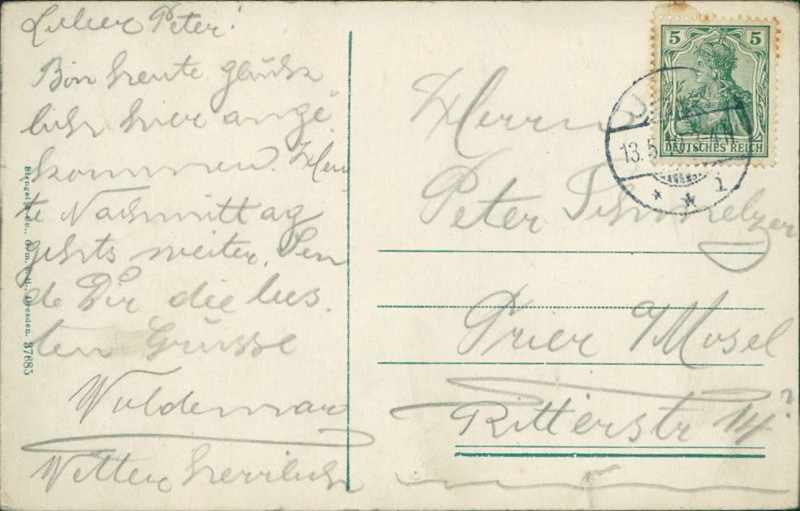 Lieber Peter!
Bin heute glück
lich hier ange
kommen. Heu
te Nachmittag
gehts weiter. Sen
de Dir die bes.
ten Grüsse
Woldemar
Wetter herrlich
Herrn
Peter Schmelzer
Trier Mosel
Ritterstr 14?
5 5
DEUTSCHES REICH
13.5.
1
Dresden. 37685